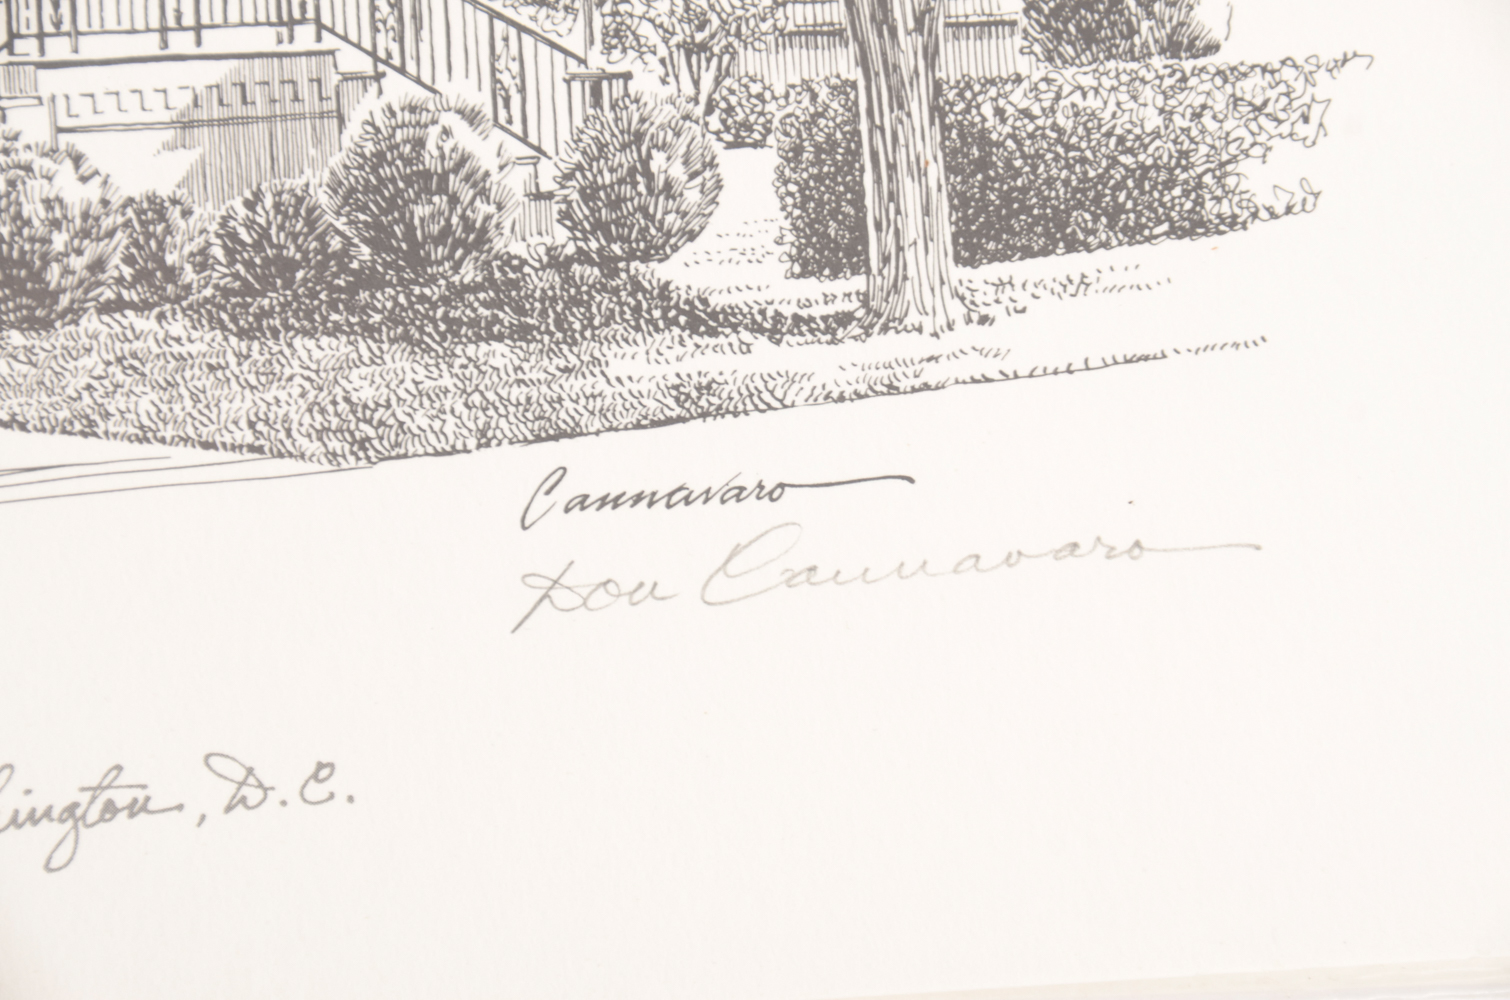 Cannavaro
Don Cannavaro
hington, D.C.